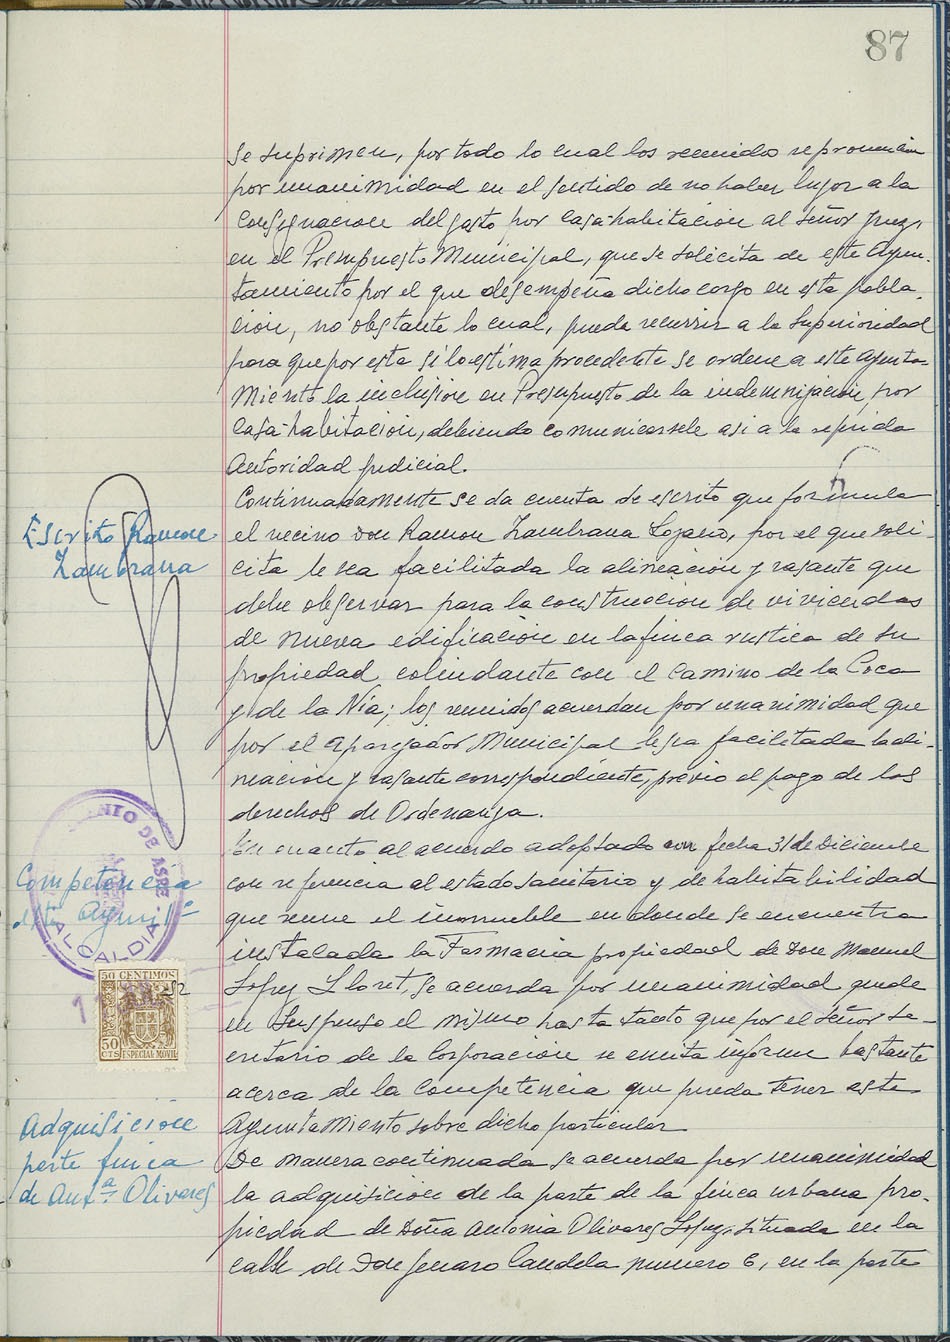 87
se suprimen, por todo lo cual los reunidos se pronuncian
por unanimidad en el sentido de no haber lugar a la
consignación del gasto por casa-habitación al Señor Juez,
en el Presupuesto Municipal, que se solicita de este Ayun-
tamiento por el que desempeña dicho cargo en esta pobla-
ción, no obstante lo cual, pueda recurrir a la Superioridad
para que por esta si lo estima procedente se ordene a este Ayunta-
miento la inclusión en Presupuesto de la indemnización por
casa-habitación, debiendo comunicarsele asi a la referida
Autoridad judicial.
Escrito Ramon
Zambrana
Continuadamente se da cuenta de escrito que formula
el vecino Don Ramon Zambrana Lozano, por el que soli-
cita le sea facilitada la alineación y rasante que
debe observar para la construcción de viviendas
de nueva edificación en la finca rustica de su
propiedad colindante con el camino de la Coca
y de la Vía; los reunidos acuerdan por unanimidad que
por el Aparejador Municipal le sea facilitada la ali-
neación y rasante correspondiente, previo el pago de los
derechos de Ordenanza.
Competencia
este Aymtº
En cuanto al acuerdo adoptado con fecha 31 de Diciembre
con referencia al estado sanitario y de habitabilidad
que reune el inmueble en donde se encuentra
instalada la Farmacia propiedad de Don Manuel
Lopez Lloret, se acuerda por unanimidad quede
en suspenso el mismo hasta tanto que por el Señor Se-
cretario de la Corporación se emita informe bastante
acerca de la competencia que pueda tener este
Ayuntamiento sobre dicho particular
Adquisición
parte finca
de Antª Olivares
De manera continuada se acuerda por unanimidad
la adquisición de la parte de la finca urbana pro-
piedad de Doña Antonia Olivares Lopez, situada en la
calle de Don Genaro Candela numero 6, en la parte
DE ASPE
ALCALDIA
50 CENTIMOS
50
CTS
ESPECIAL MOVIL